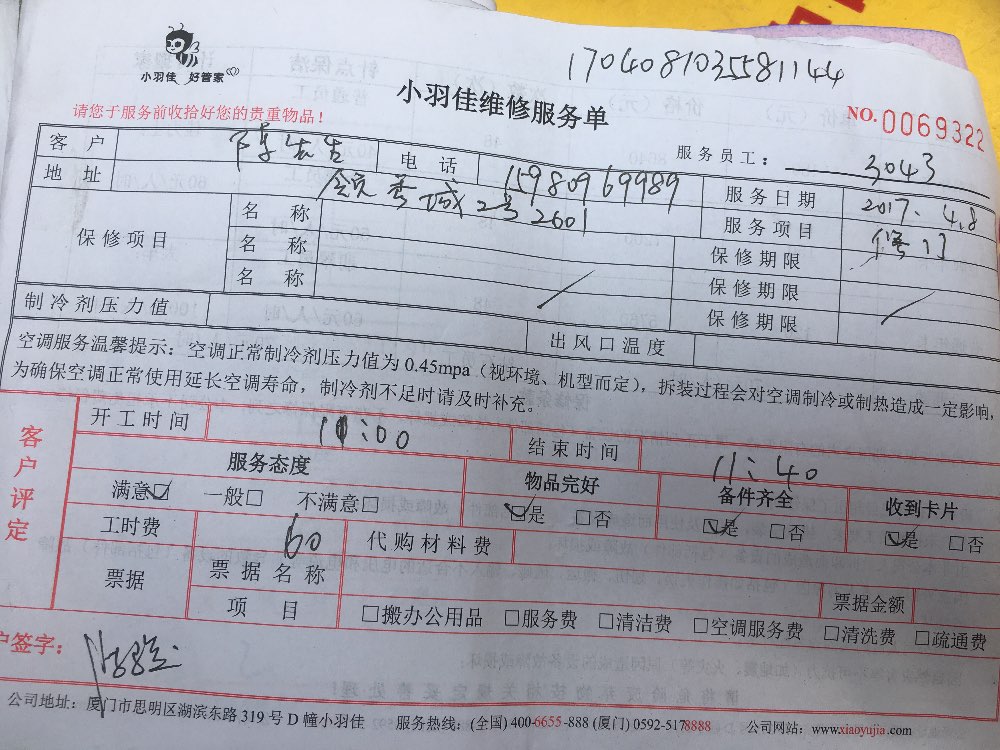 小羽佳 好管家
170408103558 1144
小羽佳维修服务单
NO.0069322
请您于服务前收拾好您的贵重物品！
服务员工： 3043
客 户 先生 电 话 15980969989 服务日期 2017.4.8
地 址 秀城2号2601 服务项目 修门
保修项目 名 称 保修期限
名 称 保修期限
名 称 保修期限
制冷剂压力值 出风口温度
空调服务温馨提示：空调正常制冷剂压力值为0.45mpa（视环境、机型而定），拆装过程会对空调制冷或制热造成一定影响，
为确保空调正常使用延长空调寿命，制冷剂不足时请及时补充。
客户评定
开工时间 11:00 结束时间 11:40
服务态度 物品完好 备件齐全 收到卡片
满意☑ 一般□ 不满意□ ☑是 □否 ☑是 □否 ☑是 □否
工时费 60 代购材料费
票据 票据名称 票据金额
项 目 □搬办公用品 □服务费 □清洁费 □空调服务费 □清洗费 □疏通费
户签字：
公司地址：厦门市思明区湖滨东路319号D幢小羽佳 服务热线：(全国) 400-6655-888 (厦门) 0592-5178888 公司网站：www.xiaoyujia.com